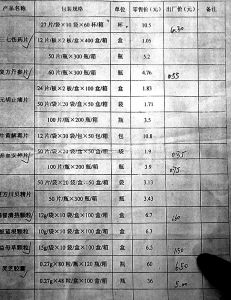 产品名称 包装规格 单位 零售价(元) 出厂价(元) 备注
27片/袋×10袋×60杯/箱 杯 10.5 6.30
七伤药片 12片/板×2板/盒×400盒/箱 盒 1.05
50片/瓶×300瓶/箱 瓶 5.2
复方丹参片 60片/瓶×300瓶/箱 瓶 4.76
24片/板×2板/盒×100盒/箱 盒 1.83
元胡止痛片 50片/袋×20袋/盒×50盒/箱 袋 1.71
100片/瓶×200瓶/箱 瓶 3.5
牛黄解毒片 12片/袋×30袋/包×50包/箱 包 10.8
50片/袋×20袋/盒×50盒/箱 袋 1.9
100片/瓶×200瓶/箱 瓶 3.9
50片/袋×20袋/盒×50盒/箱 袋 3.13
50片/瓶×300瓶/箱 瓶 3.43
12g/袋×10袋/盒×100盒/箱 盒 6.7
板蓝根颗粒 10g/袋×10袋/盒×100盒/箱 盒 6.3
益母草颗粒 15g/袋×10袋/盒×100盒/箱 盒 6.3
灵芝胶囊 0.27g×80粒/瓶×120瓶/箱 瓶 60 6.50
0.27g×48粒/盒×100盒/箱 瓶 36